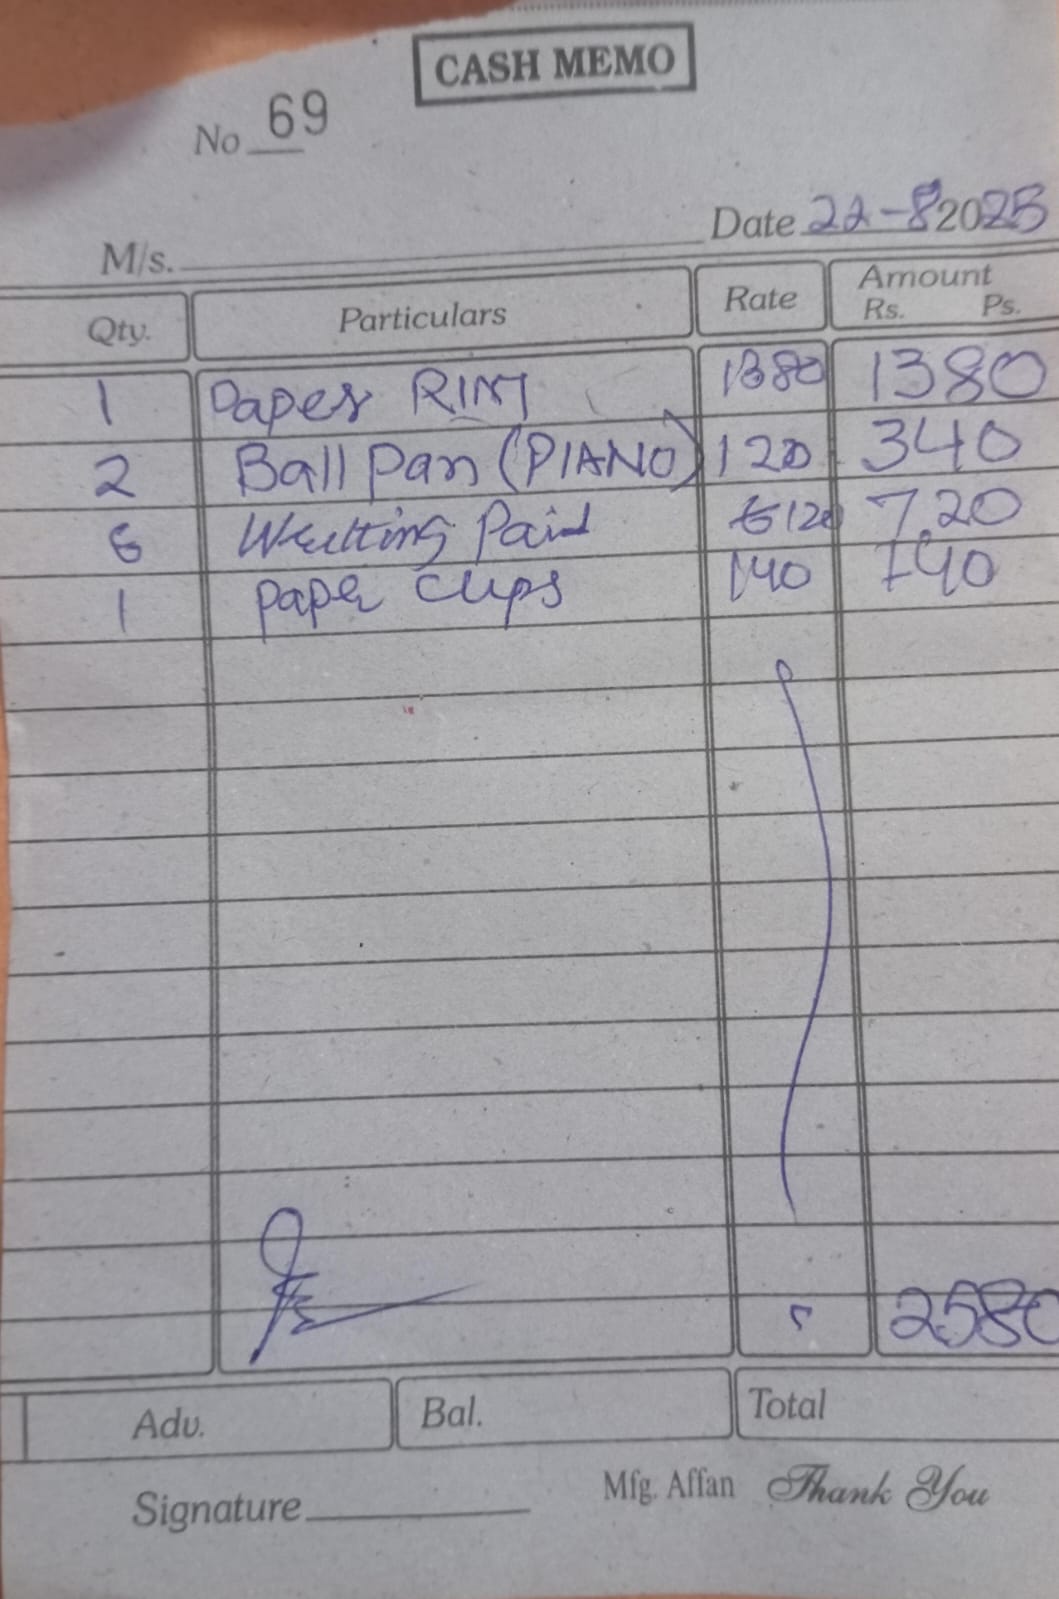 CASH MEMO
No 69
Date 22-8 2025
M/s.
Qty. Particulars Rate Amount Rs. Ps.
1 Paper RIM 1380 1380
2 Ball Pan (PIANO) 120 340
6 Wrutting Paid 120 720
1 paper clips 140 140
2580
Adv. Bal. Total
Signature
Mfg. Affan Thank You